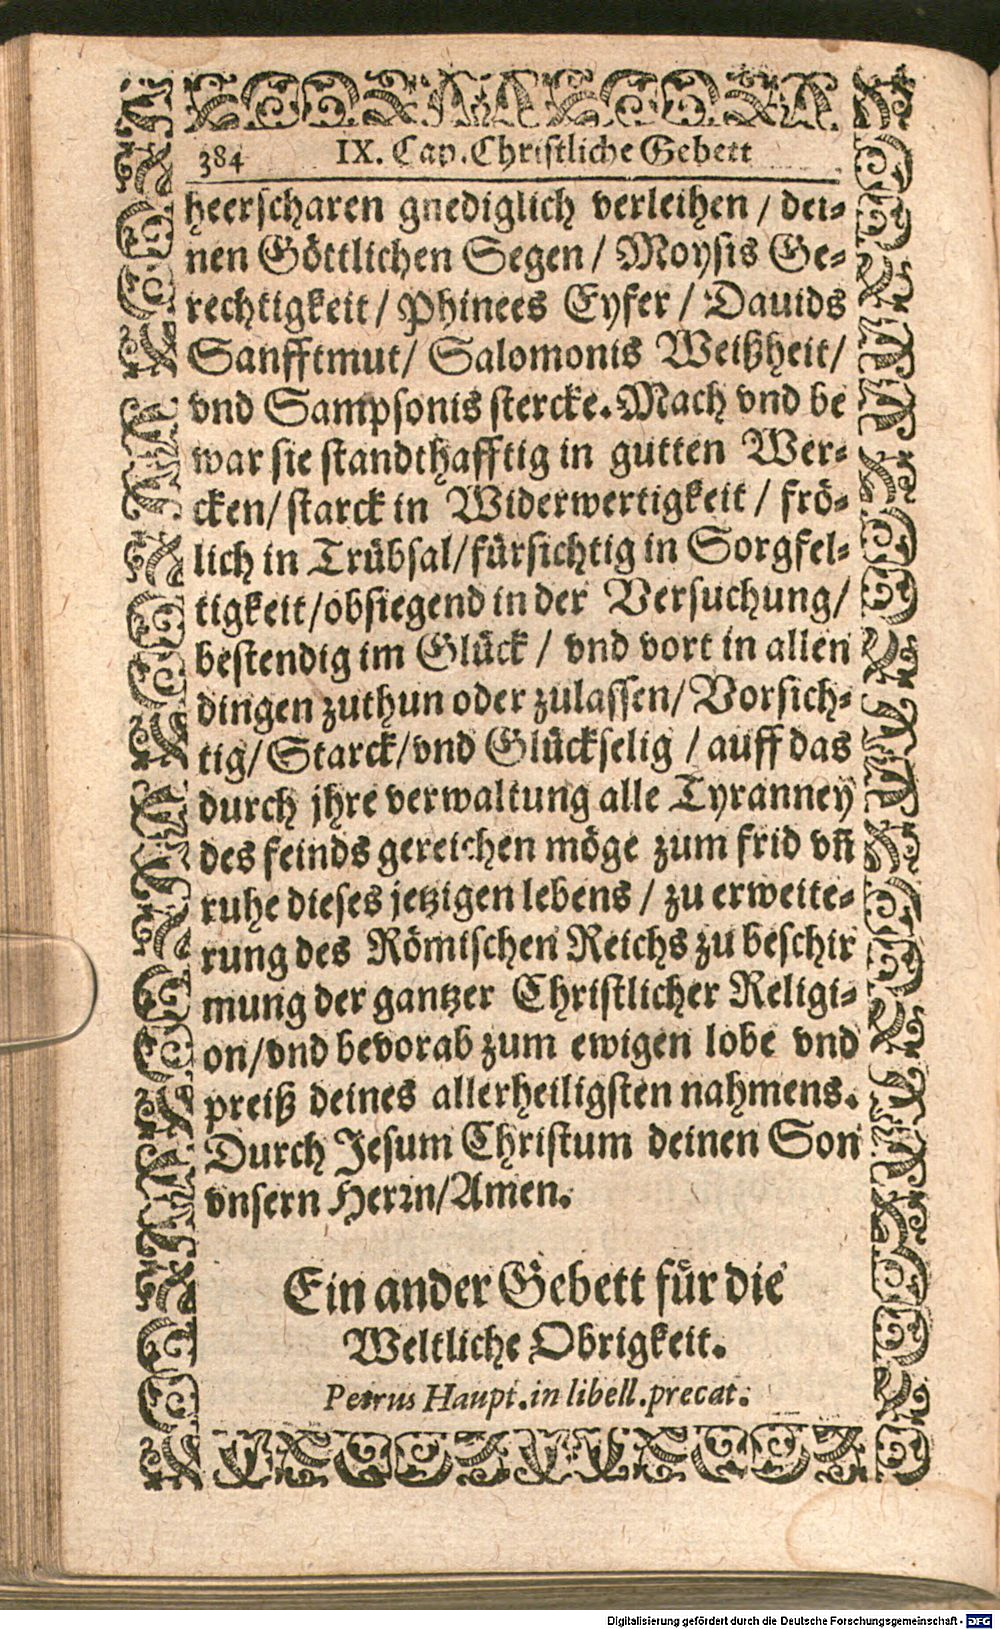 384 IX. Cap. Christliche Gebett
heerscharen gnediglich verleihen / dei-
nen Göttlichen Segen / Moysis Ge-
rechtigkeit / Phinees Eyfer / Dauids
Sanfftmut / Salomonis Weißheit /
vnd Sampsonis stercke. Mach vnd be
war sie standthafftig in gutten Wer-
cken / starck in Widerwertigkeit / frö-
lich in Trübsal / fürsichtig in Sorgfel-
tigkeit / obsiegend in der Versuchung /
bestendig im Glück / vnd vort in allen
dingen zuthun oder zulassen / Vorsich-
tig / Starck / vnd Glückselig / auff das
durch jhre verwaltung alle Tyranney
des feinds gereichen möge zum frid vñ
ruhe dieses jetzigen lebens / zu erweite-
rung des Römischen Reichs zu beschir
mung der gantzer Christlicher Religi-
on / vnd bevorab zum ewigen lobe vnd
preiß deines allerheiligsten nahmens.
Durch Jesum Christum deinen Son
vnsern Herrn / Amen.
Ein ander Gebett für die
Weltliche Obrigkeit.
Petrus Haupt. in libell. precat.
Digitalisierung gefördert durch die Deutsche Forschungsgemeinschaft - DFG